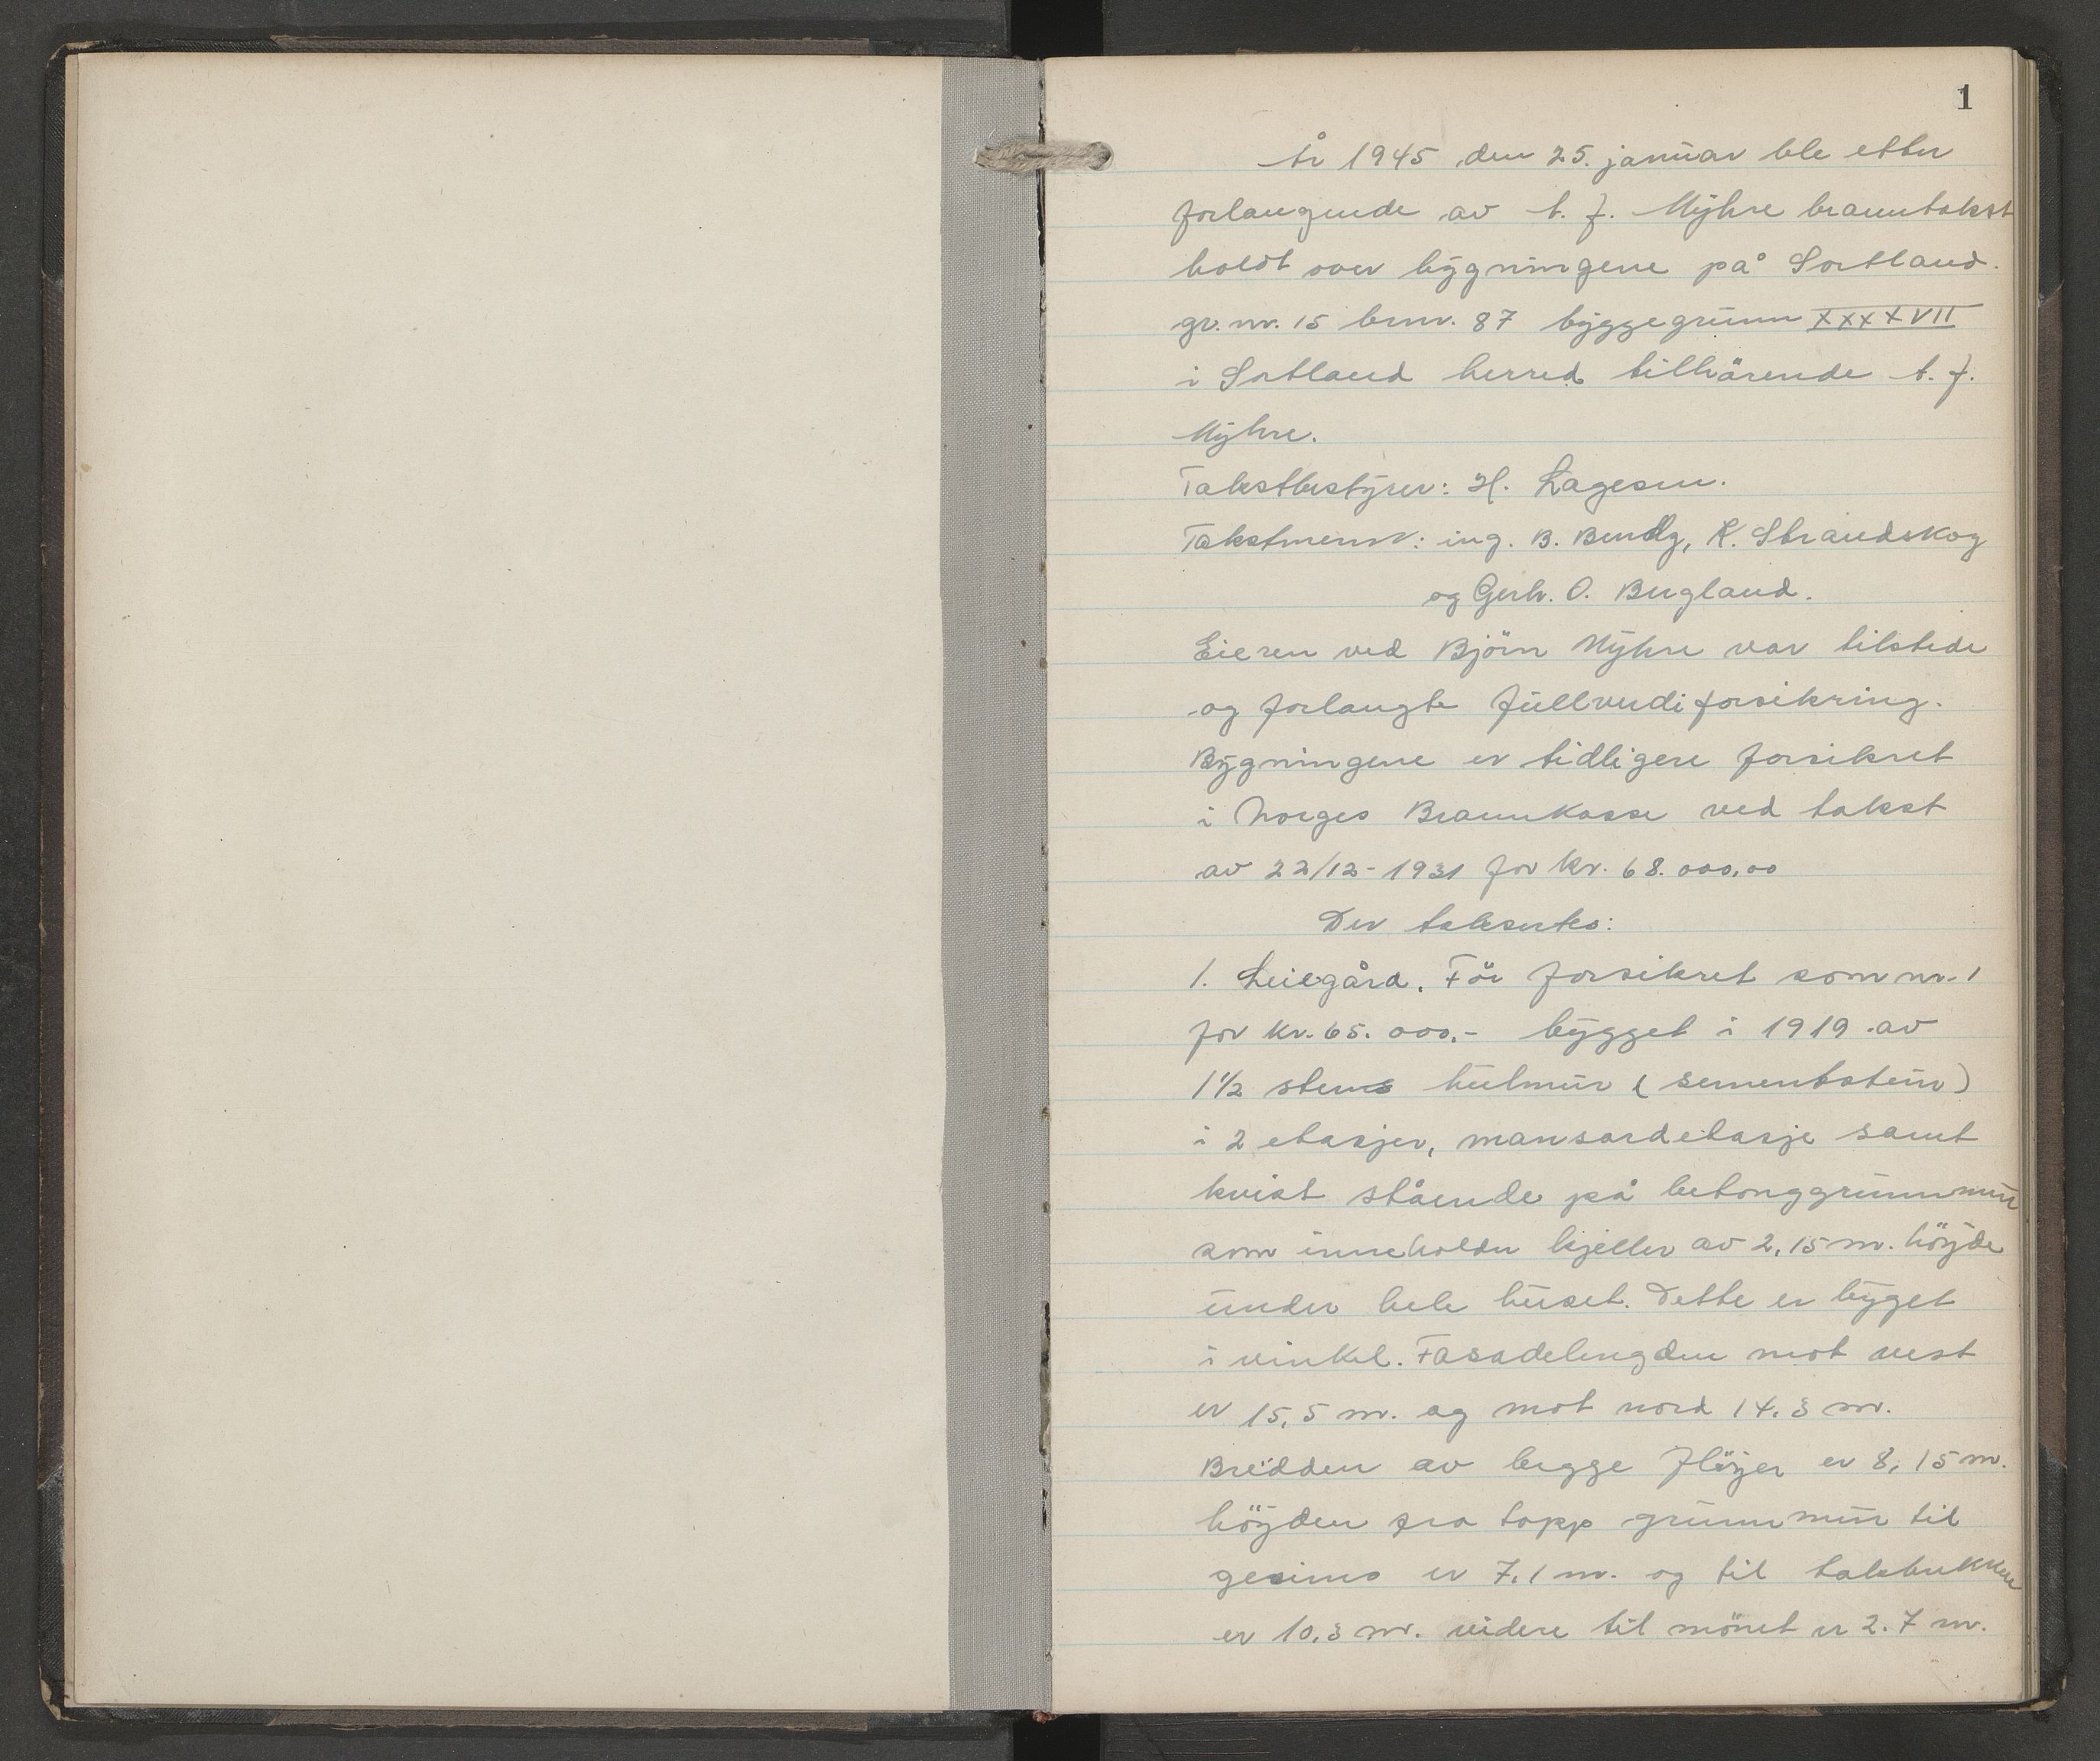 1
År 1945 den 25. januar ble etter
forlangende av t. J. Myhre branntakst
holdt over bygningene på Sortland.
gr. nr. 15 brnr. 87 byggegrunn XXXXVII
i Sortland herred tilhörende t. J.
Myhre.
Takstbestyrer: H. Lagesen.
Takstmenn: ing. B. K. Strandskog
og Gerh. O. Bergland.
Eieren ved Björn Myhre var tilstede
og forlangte fullverdiforsikring.
Bygningene er tidligere forsikret
i Norges Brannkasse ved takst
av 22/12-1931 for kr. 68.000,00
Der taksertes:
1. Leiegård. För forsikret som nr. 1
for kr. 65.000,- bygget i 1919 av
1½ stens hulmur (sementstein)
i 2 etasjer, mansardetasje samt
kvist stående på betonggrunnmur
som inneholder kjeller av 2,15 m. höyde
under hele huset. Dette er bygget
i vinkel. Fasadelengden mot vest
er 15,5 m. og mot nord 14,3 m.
Bredden av begge flöyer er 8,15 m.
höyden fra topp grunnmur til
gesims er 7,1 m. og til takbrekken
er 10,3 m. videre til mönet er 2.7 m.